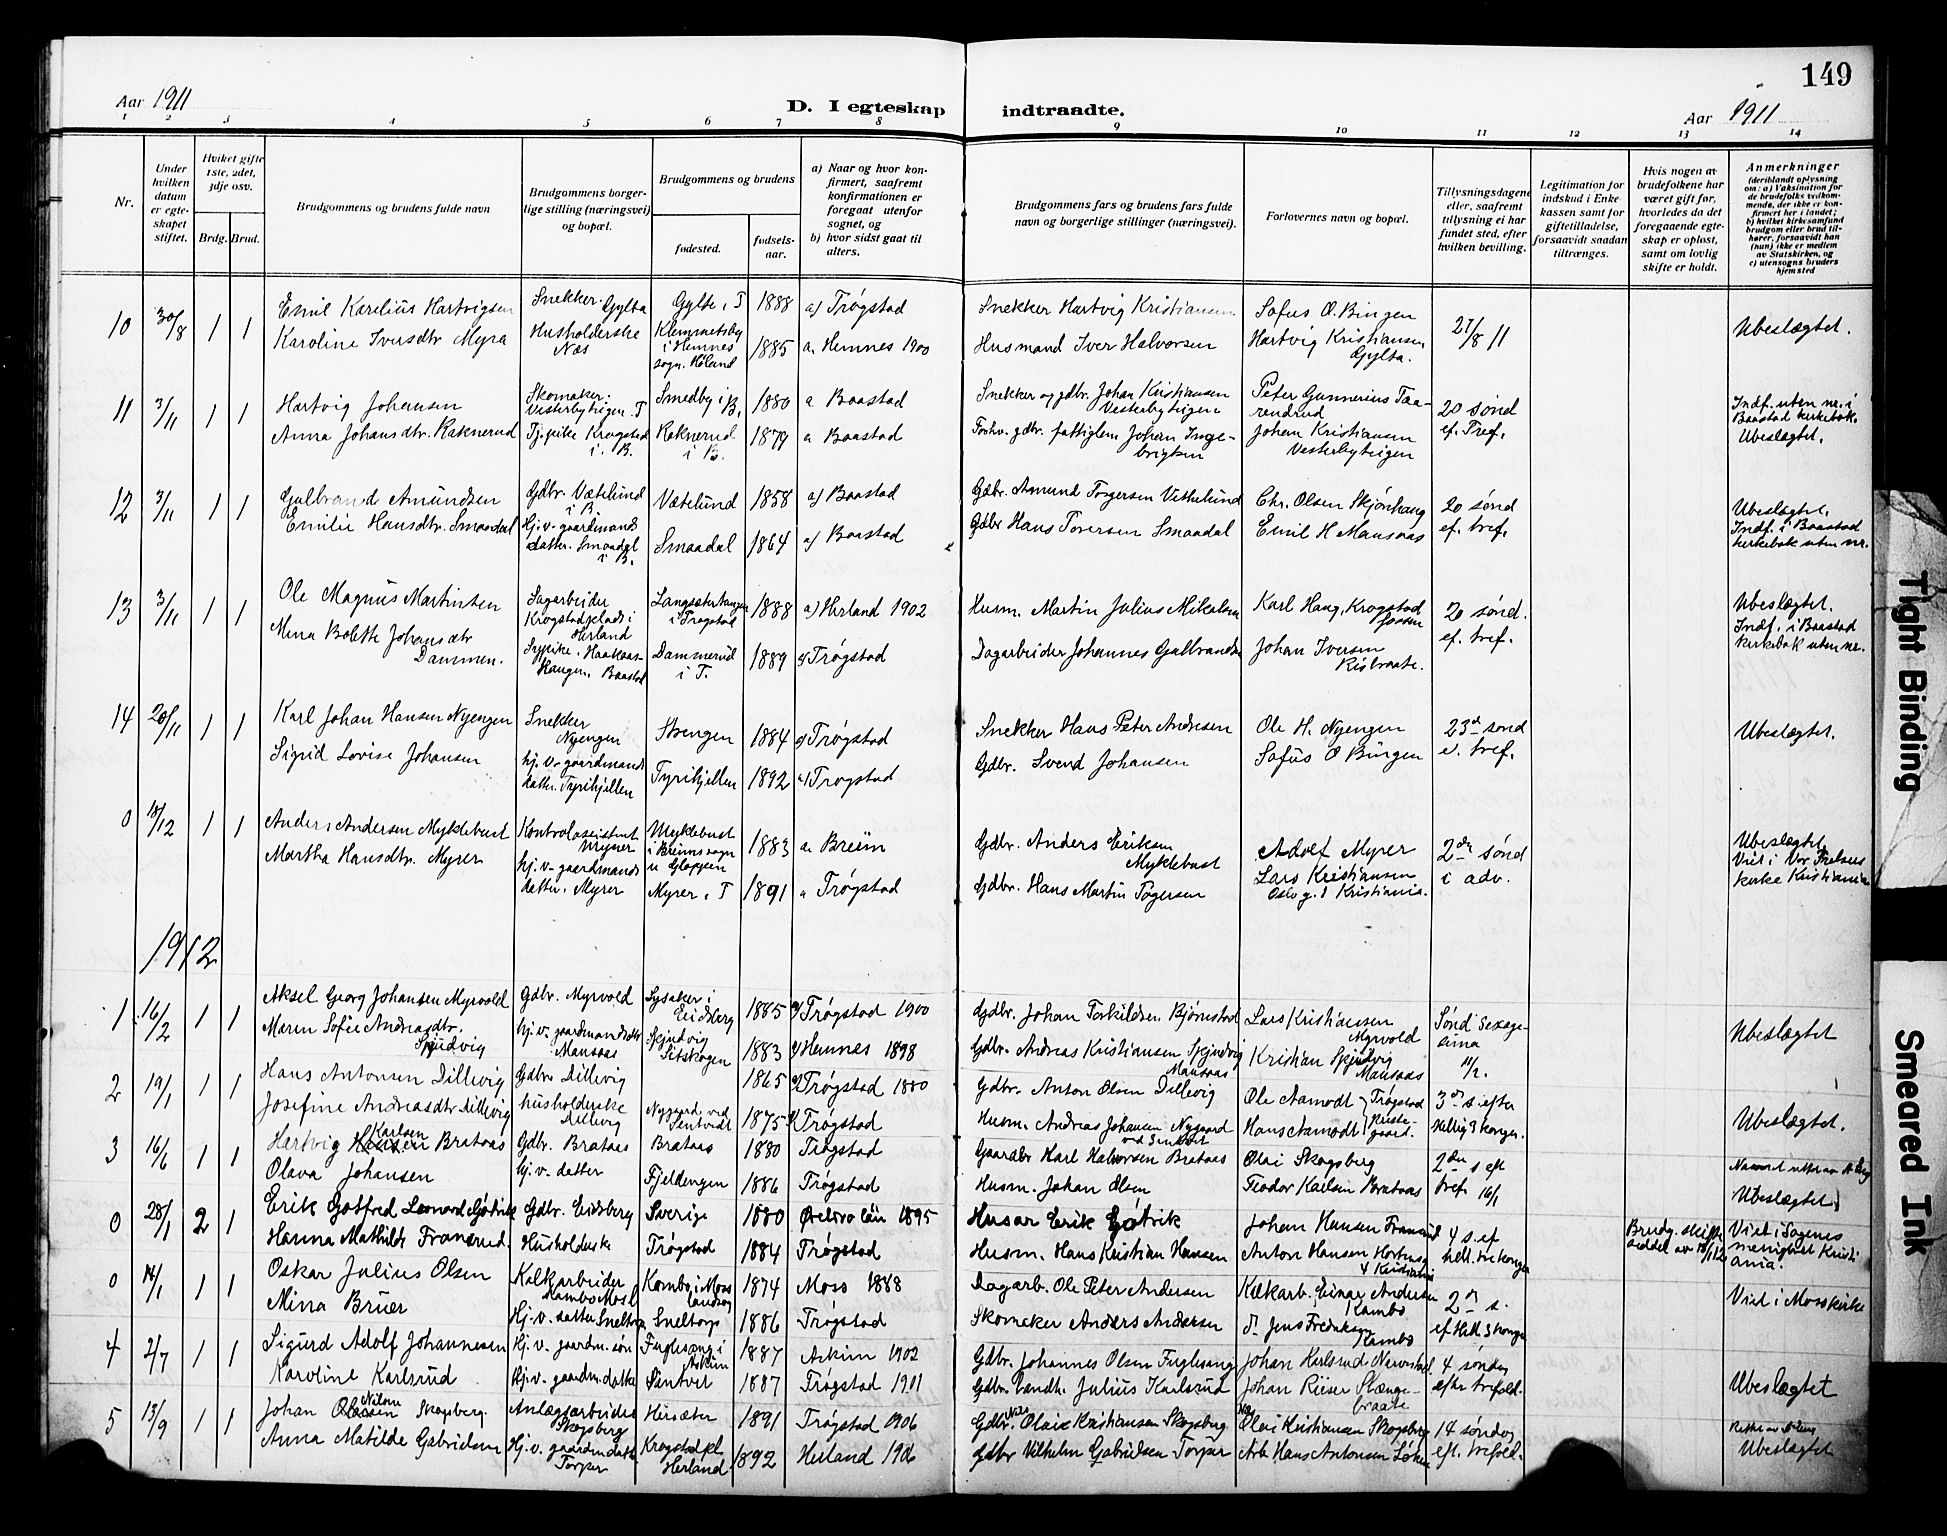 149
Aar 1911
D. I egteskap indtraadte.
Aar 1911
1 2 3 4 5 6 7 8 9 10 11 12 13 14
Nr.
Under hvilken datum er egteskapet stiftet.
Hvilket gifte 1ste, 2det, 3dje osv.
Brdg. Brud.
Brudgommens og brudens fulde navn
Brudgommens borgerlige stilling (næringsvei) og bopæl.
Brudgommens og brudens
fødested.
fødselsaar.
a) Naar og hvor konfirmert, saafremt konfirmationen er foregaat utenfor sognet, og
b) hvor sidst gaat til alters.
Brudgommens fars og brudens fars fulde navn og borgerlige stillinger (næringsvei).
Forlovernes navn og bopæl.
Tillysningsdagene eller, saafremt tillysning ei har fundet sted, efter hvilken bevilling.
Legitimation for indskud i Enkekassen samt for giftetilladelse, forsaavidt saadan tiltrænges.
Hvis nogen av brudefolkene har været gift før, hvorledes da det foregaaende egteskap er opløst, samt om lovlig skifte er holdt.
Anmerkninger
(deriblandt oplysning om: a) Vaksination for de brudefolks vedkommende, der ikke er konfirmert her i landet; b) hvilket kirkesamfund brudgom eller brud tilhører, forsaavidt han (hun) ikke er medlem av Statskirken, og c) utensogns bruders hjemsted
10 30/8 1 1 Emil Karelius Hartvigsen Snekker. Gylta Gylte i T 1888 a) Trøgstad Snekker Hartvig Kristiansen Sofus O. Bingen 27/8 11 Ubeslægtet.
Karoline Iversdtr Myra Husholderske Næs Klemmetsby i Hemnes sogn. Høland 1885 a. Hemnes 1900 Husmand Iver Halvorsen Hartvig Kristiansen Gylta.
11 3/11 1 1 Hartvig Johansen Skomaker: Vesterbytrigen. T Smedby i B. 1880 a Baastad Snekker og gdbr. Johan Kristiansen Vesterbytrigen Peter Gunnerius 20 sønd ef. Tref. Indf. uten nr. i Baastad kirkebok. Ubeslægtet.
Anna Johansdtr. Raknerud Tj.pike Krogstad i B. Raknerud i B. 1879 a Baastad Forhv. gdbr. fattiglem Johan Ingebrigtsen Johan Kristiansen Vesterbytrigen
12 3/11 1 1 Gulbrand Amundsen Gdbr. Vætelund i B. Vætelund 1858 a) Baastad Gdbr. Amund Torgersen Chr. Olsen Skjønhaug 20 sønd ef. tref. Ubeslægtet. Indf. i Baastad kirkebok uten nr.
Emilie Hansdtr. Smaadal Hj.v. gaardmands datter. Smaadal i B. Smaadal 1864 a) Baastad Gdbr Hans Toversen Smaadal Emil H Mansaas
13 3/11 1 1 Ole Magnus Martinsen Sagarbeider Krogstadplads i Herland i Trøgstad 1888 a) Herland 1902 Husm. Martin Julius Mikalsen Karl Haug, Krogstad fossen 20 sønd. ef. tref. Ubeslægtet. Indf. i Baastad kirkebok uten nr.
Mina Bolette Johansdtr Dammen. Baastad Dammerud i T. 1889 a) Trøgstad Dagarbeider Johannes Gulbrandsen Johan Iversen Risbraate.
14 20/11 1 1 Karl Johan Hansen Nyengen Snekker Nyengen Strengen 1884 a) Trøgstad Snekker Hans Peter Andresen Ole H. Nyengen 23d sønd e. tref. Ubeslægtet.
Sigrid Lovise Johansen hj. v. gaardmands datter. Tyrihjellen Tyrihjellen 1892 a) Trøgstad Gdbr. Svend Johansen Sofus O Bingen
0 18/12 1 1 Anders Andersen Myklebust Kontrolassistent Myrer Myklebust i Breims sogn Gloppen 1883 a. Breim Gdbr. Anders Eriksen Myklebust Adolf Myrer 2dn sønd i adv. Ubeslægtet Viet i Vor Frelsers kirke Kristiania
Martha Hansdtr. Myrer hj. v. gaardmands datter, Myrer Myrer i T 1891 a Trøgstad Gdbr. Hans Martin Togersen Lars Kristiansen Oslo g. 1 Kristiania.
1912
1 16/2 1 1 Aksel Georg Johansen Myrvold Gdbr. Myrvold Lysaker i Eidsberg 1885 a) Trøgstad 1900 Gdbr. Johan Torkildsen Bjørnstad Lars Kristiansen Myrvold Sønd Sexagesima 11/2. Ubeslægtet
Maren Sofie Andreasdtr. Skjudvig hj. v. gaardmandsdatter Mansaas Skjudvig Sitskogen 1883 a) Hemnes 1898 Gdbr. Andreas Kristiansen Skjudvig Mansaas Kristian Skjudvig Mansaas
2 19/1 1 1 Hans Antonsen Dillevig Gdbr Dillevig 1865 a) Trøgstad 1880 Gdbr. Anton Olsen Dillevig Ole Aamodt 3dn s. efter Hellig 3 konger. Ubeslægtet.
Josefine Andreasdtr Dillevig husholderske Dillevig Nygaard ved Sentvedt 1875 a) Trøgstad Husm. Andreas Johansen Nygaard Hans Aamodt Trøgstad
3 16/6 1 1 Hartvig Karlsen Brataas Gdbr. Brataas Brataas 1880 Trøgstad Gaardbr Karl Halvorsen Brataas Olai Skogsberg 2den s eft tref. 16/1
Olava Johansen hj. v. datter Fjeldengen 1886 Trøgstad Husm. Johan Olsen Teodor Karlsen Brataas Ubeslægtet
0 28/1 2 1 Erik Gotfred Leonard Götrik Gdbr. Eidsberg Sverige 1880 Örebro län 1895 Husar Erik Götrik Johan Hansen 4 s. ef hell. tre konger Brudg. skifteseddel av Viet i Sagenes menighet Kristiania.
Hanna Mathilde Fransrud. Husholderske Trøgstad 1884 Trøgstad Husm. Hans Kristian Hansen Anton Hansen Kristiania
0 14/1 1 1 Oskar Julius Olsen Kalkarbeider Kambo Moss Kambo i Moss landsogn 1874 Moss 1888 Dagarb. Ole Peter Andersen Kalkarb. Einar Andersen Kambo 2dn s. ef Hell 3 konger Viet i Moss kirke
Mina Bruer Hj. v. datter Sneltorp Sneltorp 1886 Trøgstad Skomaker Anders Andersen Jens Fredriksen Kambo
4 2/7 1 1 Sigurd Adolf Johannesen Hj. v. gaardm. søn Fuglesang i Askim 1887 Askim 1902 Gdbr. Johannes Olsen Fuglesang Johan Karlsrud 4 søndag efter trefold. Ubeslægtet
Karoline Karlsrud Hj. v. gaardm. datter Sentvet 1887 Trøgstad 1901 Gdbr. Landh. Julius Karlsrud Johan Riiser Slængebraate
5 13/9 1 1 Johan Nilsen Skogsberg Anlægsarbeider Skogsberg Hersæter 1891 Trøgstad 1906 Gdbr. Olai Kristiansen Skogsberg Olai Kristiansen Skogsberg 14 søndag eft. trefold. Ubeslægtet
Anna Matilde Gabrielsen Hj. v. gaardm. datter Torper Krogstadpl. Herland 1892 Herland 1906 Gdbr Vilhelm Gabrielsen Torper Arb Hans Antonsen
Tight Binding
Smeared Ink